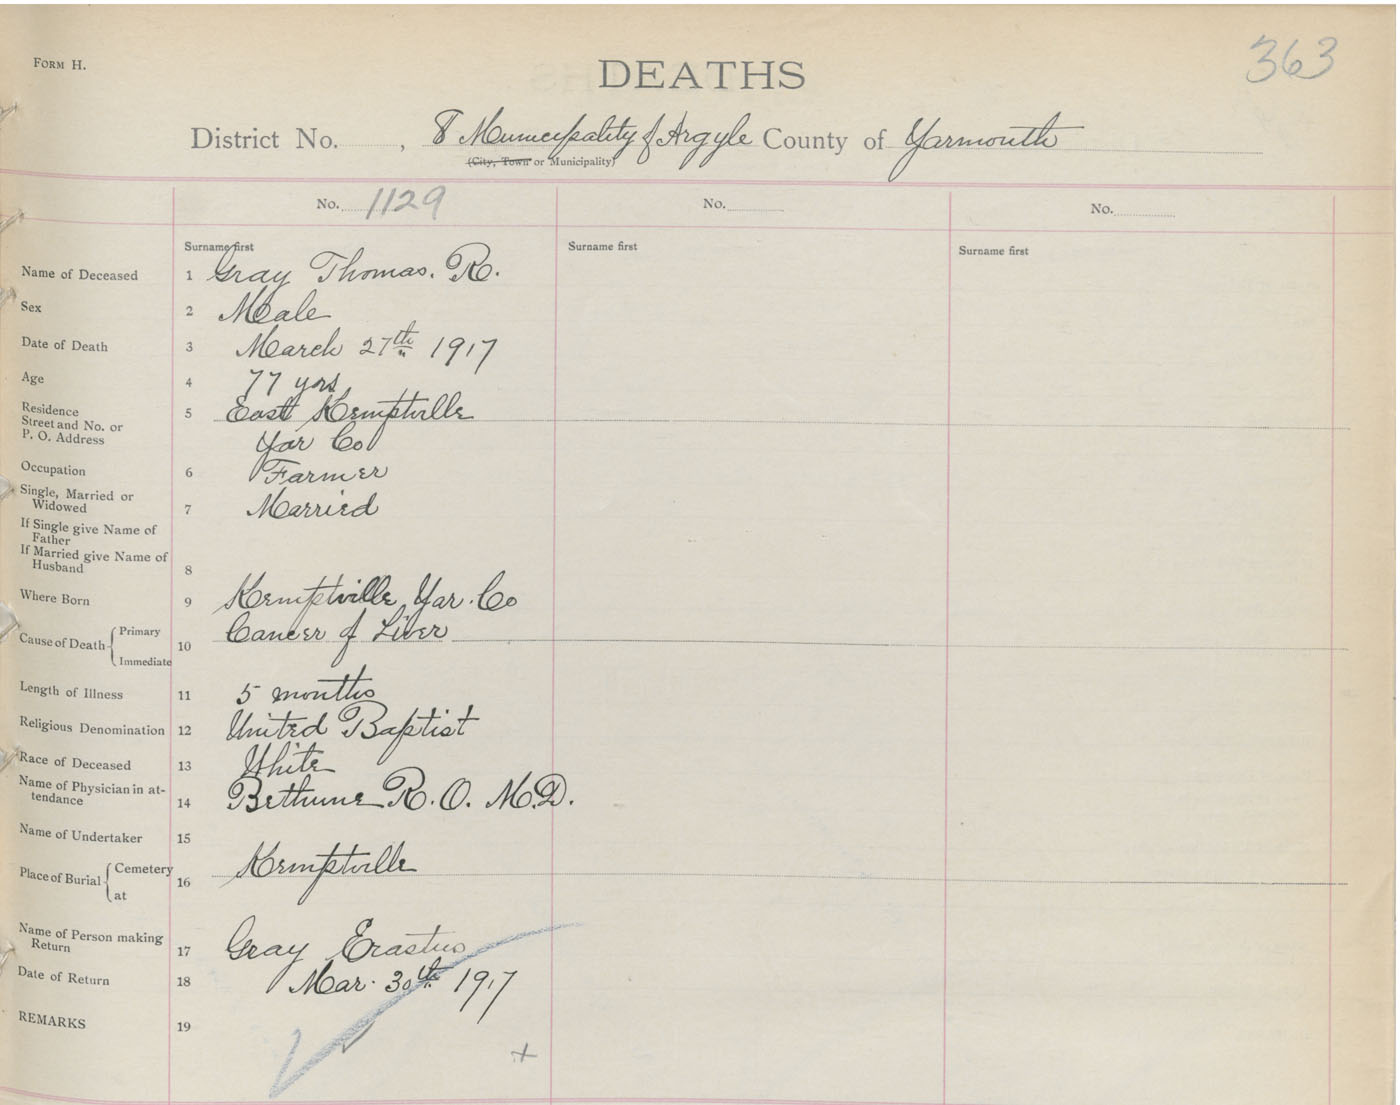 363
FORM H.
DEATHS
District No. , 8 Municipality of Argyle County of Yarmouth
(City, Town or Municipality)
No. 1129 No. No.
Surname first Surname first Surname first
Name of Deceased 1 Gray Thomas. R.
Sex 2 Male
Date of Death 3 March 27th 1917
Age 4 77 yrs
Residence 5 East Kemptville
Street and No. or
P. O. Address Yar Co
Occupation 6 Farmer
Single, Married or
Widowed 7 Married
If Single give Name of
Father
If Married give Name of
Husband 8
Where Born 9 Kemptville Yar. Co
Cause of Death Primary 10 Cancer of Liver
Immediate
Length of Illness 11 5 months
Religious Denomination 12 United Baptist
Race of Deceased 13 White
Name of Physician in at-
tendance 14 Bethune R. O. M.D.
Name of Undertaker 15
Place of Burial Cemetery 16 Kemptville
at
Name of Person making
Return 17 Gray Erastus
Date of Return 18 Mar. 30th 1917
REMARKS 19